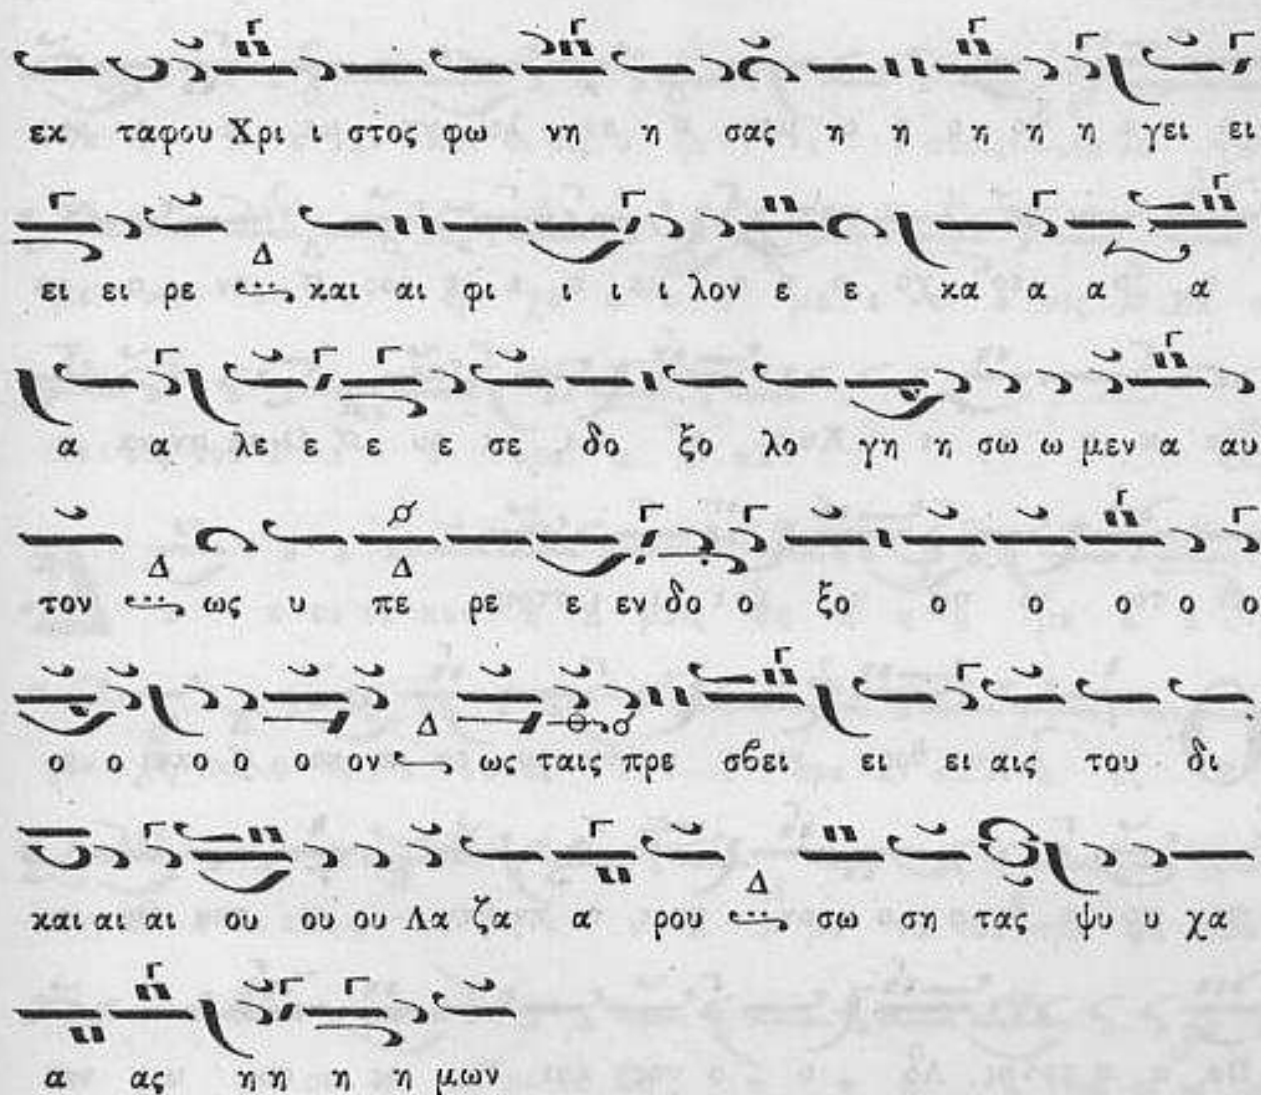 εκ ταφου Χρι ι στος φω νη η σας η η η η η γει ει
ει ει ρε και αι φι ι ι ι λον ε ε κα α α α
α α λε ε ε ε σε δο ξο λο γη η σω ω μεν α αυ
τον ως υ πε ρε ε εν δο ο ξο ο ο ο ο ο
ο ο ο ο ο ον ως ταις πρε σβει ει ει αις του δι
και αι αι ου ου ου Λα ζα α ρου σω ση τας ψυ υ χα
α ας η η η η μων